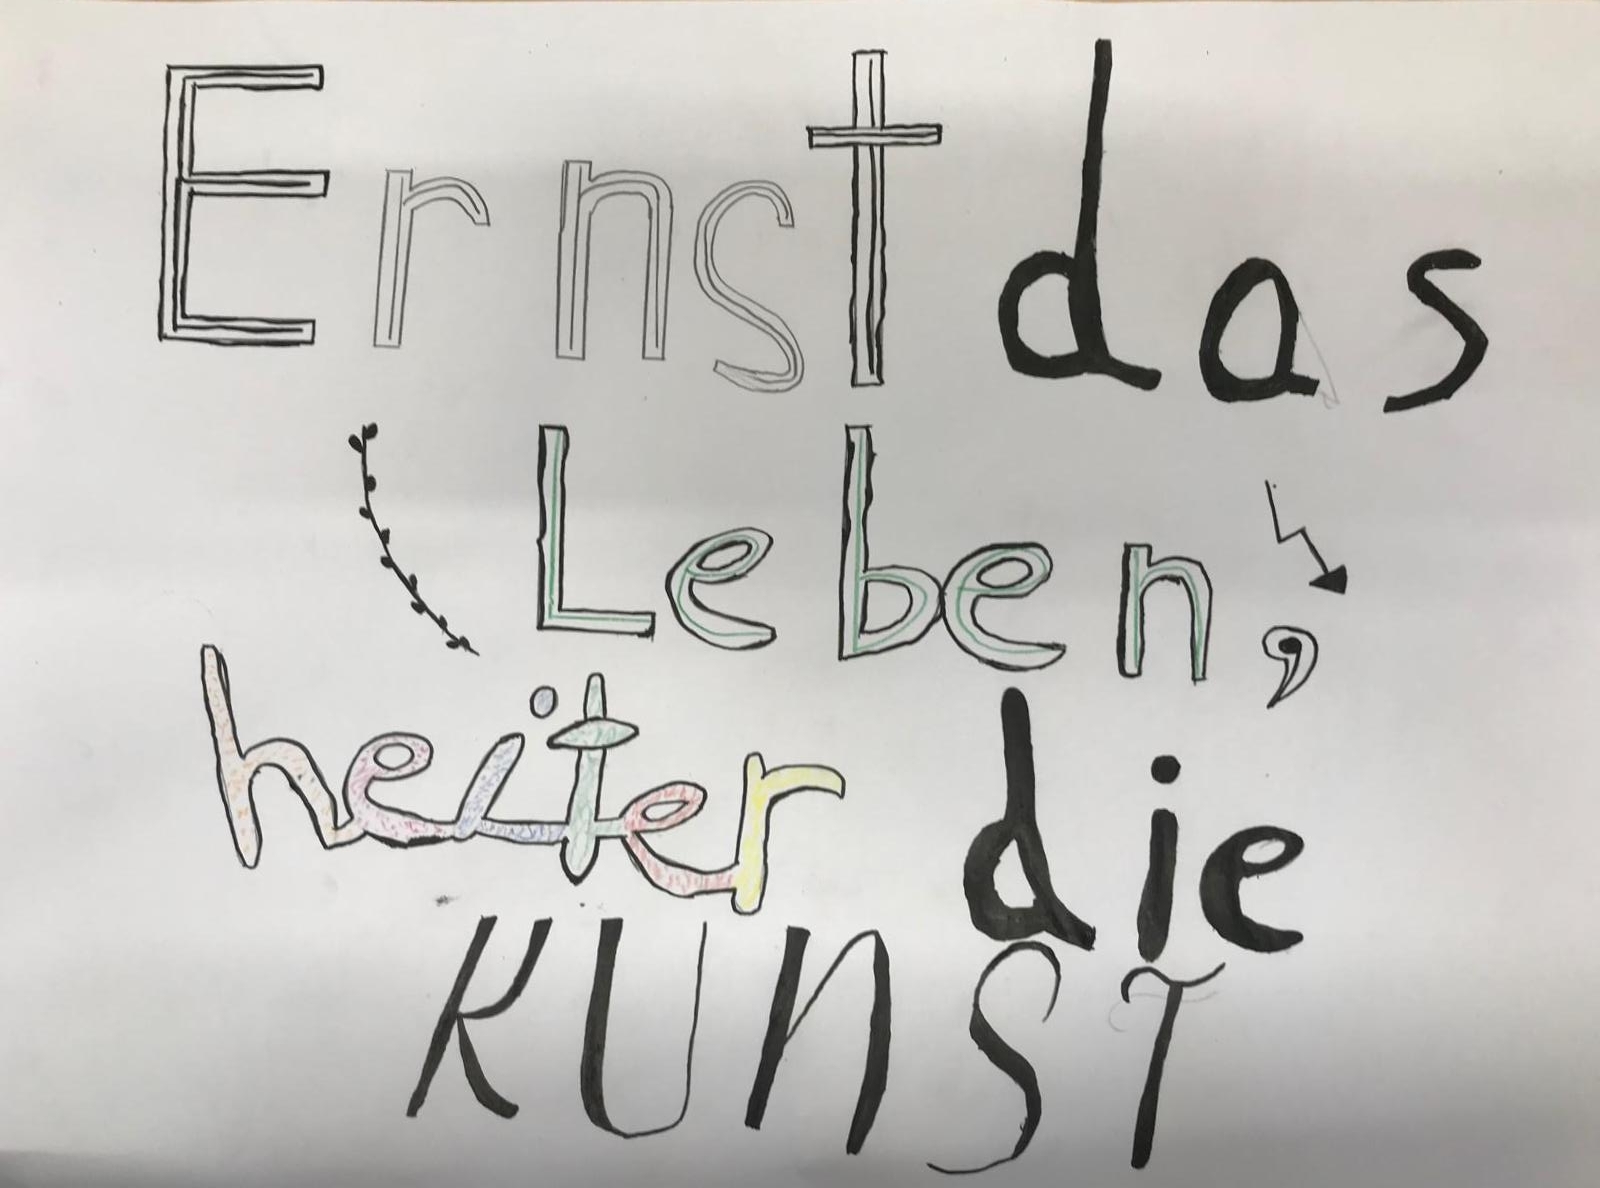 Ernst das
Leben,
heiter die
KUnST